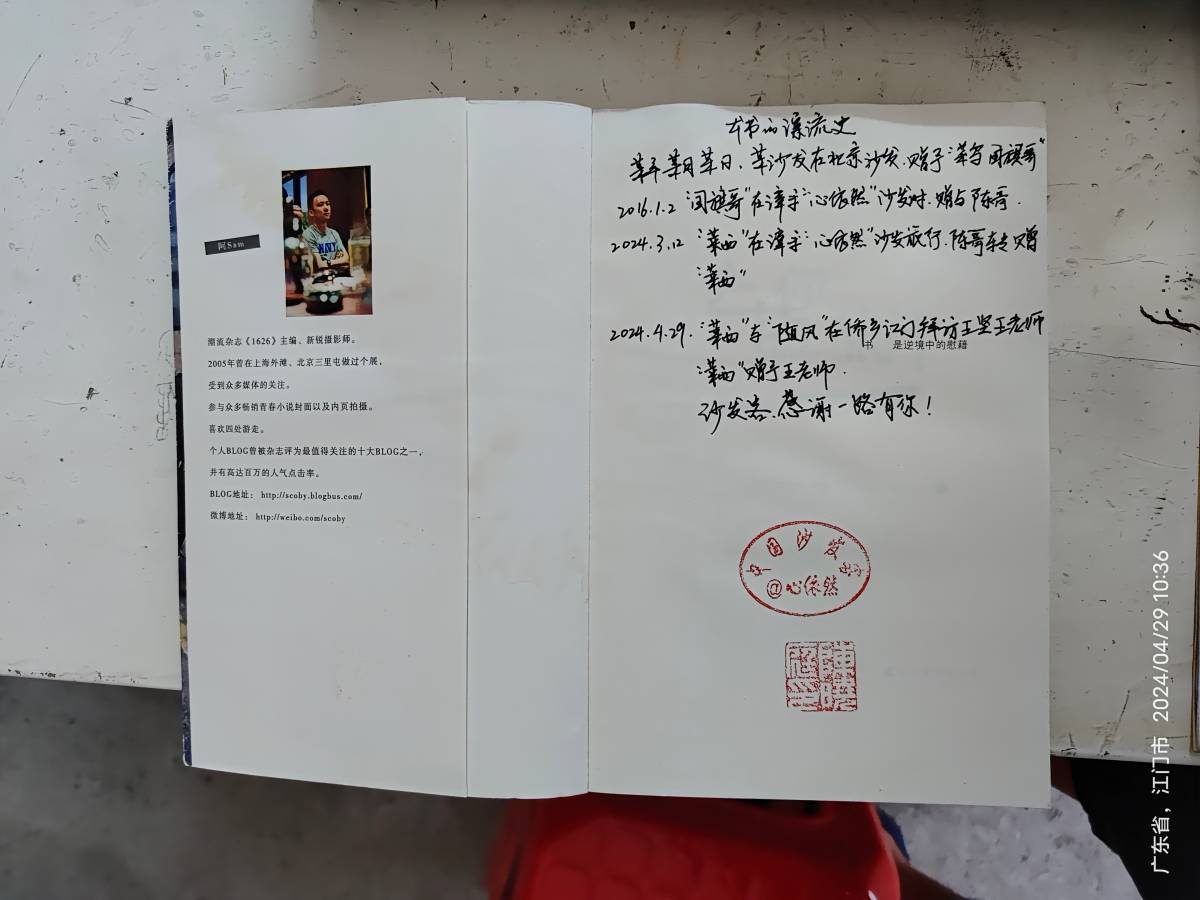 阿Sam
潮流杂志《1626》主编、新锐摄影师。
2005年曾在上海外滩、北京三里屯做过个展，
受到众多媒体的关注。
参与众多畅销青春小说封面以及内页拍摄。
喜欢四处游走。
个人BLOG曾被杂志评为最值得关注的十大BLOG之一，
并有高达百万的人气点击率。
BLOG地址： http://scoby.blogbus.com/
微博地址： http://weibo.com/scoby
本书的漂流史
某年某月某日，某沙发在北京沙发，赠予
2016.1.2 "国旗哥"在漳平"心依然"沙发时，赠与陈哥.
2024.3.12 "潇西"在漳平"心依然"沙发旅行，陈哥转赠
"潇西"
2024.4.29. "潇西"与"随风"在侨乡江门拜访王坚王老师
书 是逆境中的慰藉
"潇西"赠予王老师.
沙发客，感谢一路有你！
中国沙发客
@心依然
广东省，江门市 2024/04/29 10:36